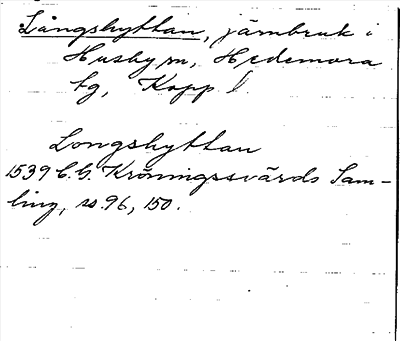 Långshyttan, järnbruk i
Husby sn, Hedemora
tg, Kopp l.
Longshyttan
1539 C.G. Kröningssvärds Sam-
ling, ss. 96, 150.